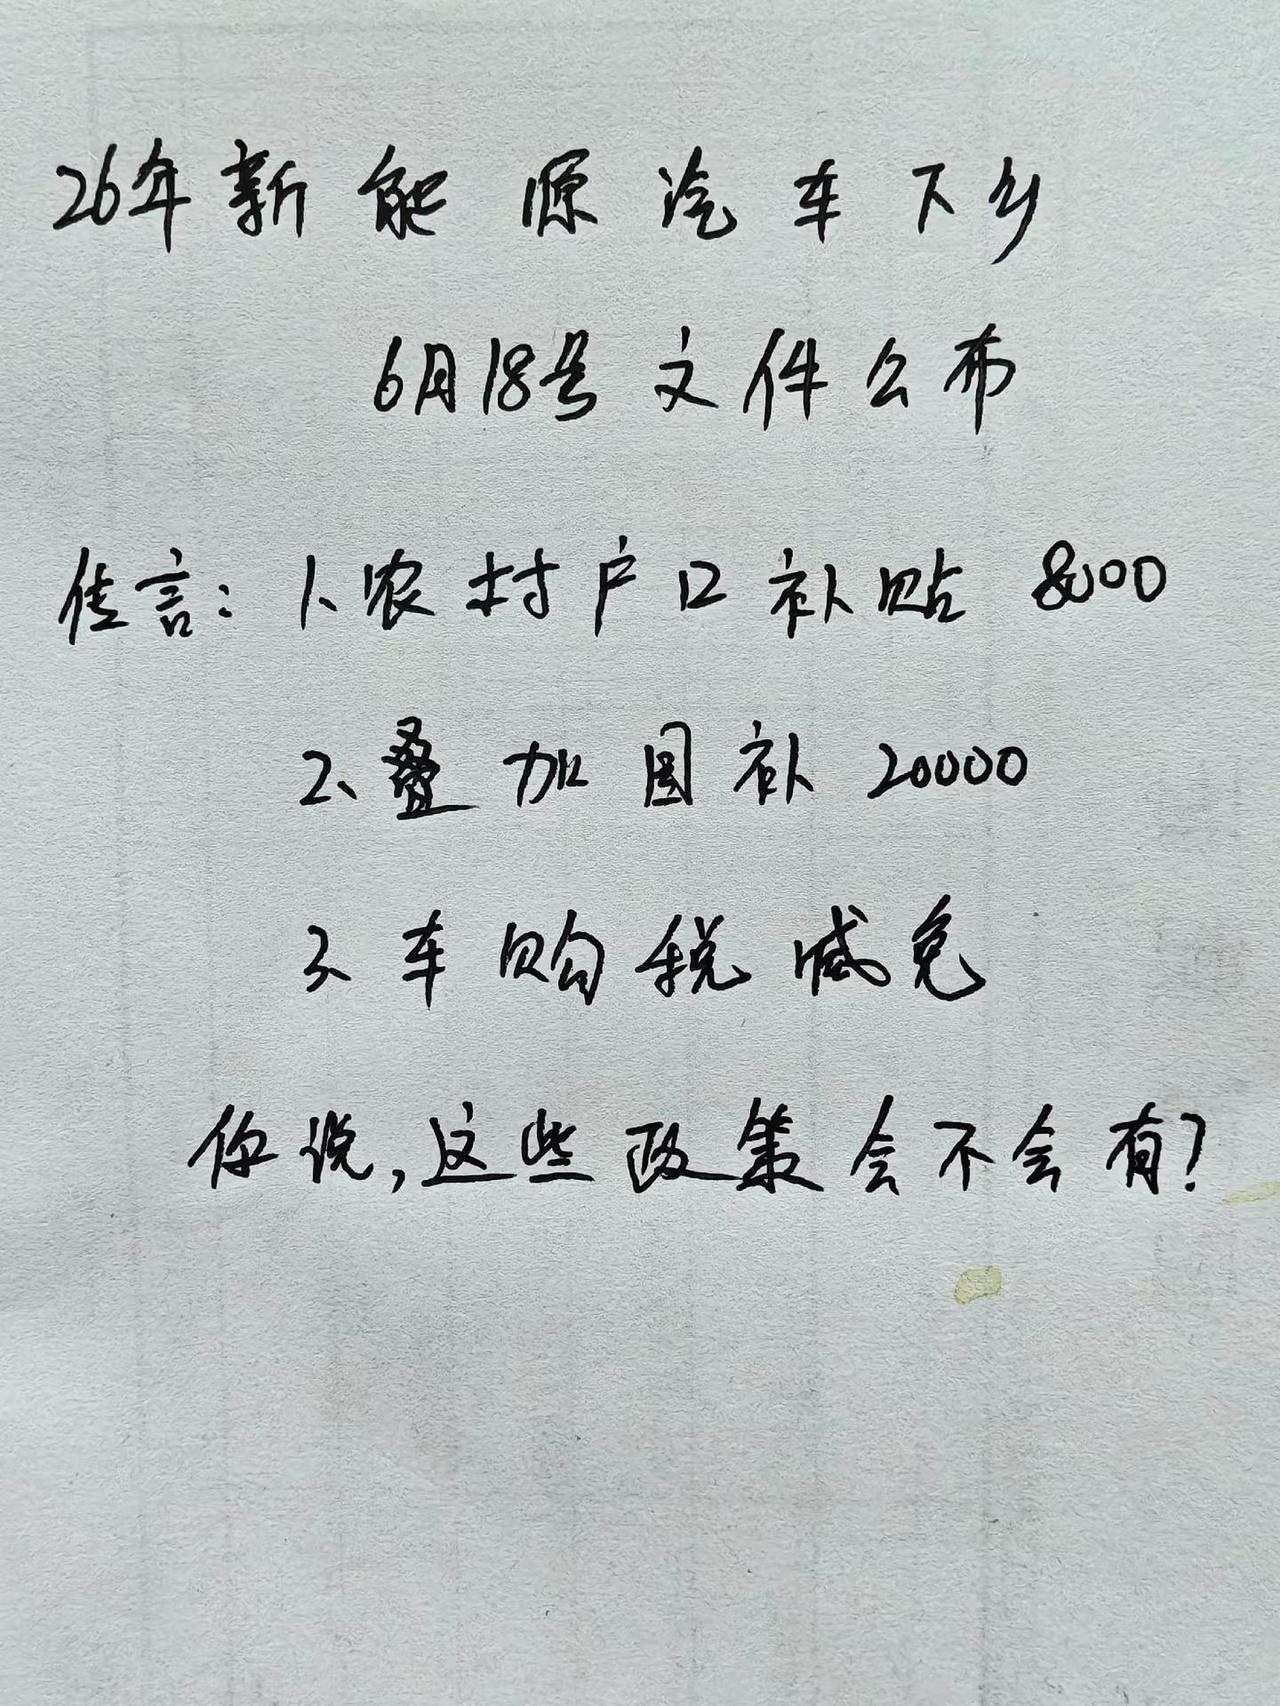 26年新能源汽车下乡
6月18号文件公布
传言:1、农村户口补贴8000
2、叠加国补20000
3、车购税减免
你说,这些政策会不会有?